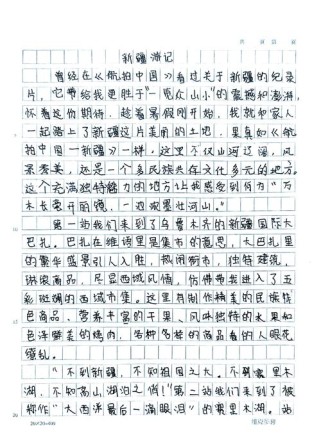 新疆游记
曾经在《航拍中国》看过关于新疆的纪录
片，它带给我更胜于“一览众山小”的震撼和澎湃，
怀着这份期待，趁着暑假刚开始，我就和家人
一起踏上了新疆这片美丽的土地，里真如《航
拍中国—新疆》一样，这里不仅山河辽阔，风
景秀美，还是一个多民族共存文化多元的地方。
这个充满独特魅力的地方让我感受到何为“万
木长荣开丽镜，一边观墨壮河山。”
第一站我们来到了乌鲁木齐的新疆国际大
巴扎。巴扎在维语里是集市的意思，大巴扎里
的繁华盛景引人入胜，热闹街市，独特建筑，
琳琅商品，尽显西域风情，仿佛带我进入了五
彩斑斓的西域市集。这里有制作精美的民族特
色商品、营养丰富的干果、风味独特的水果和
色泽鲜美的烤肉，各种各样的商品看的人眼花
缭乱。
“不到新疆，不知祖国之大。不到赛里木
湖，不知高山湖泊之俏！”第二站我们来到了被
称作“大西洋最后一滴眼泪”的赛里木湖。站
20×20=400